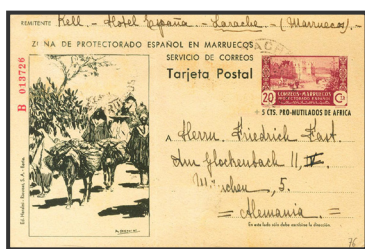 REMITENTE Kell. - Hotel España. - Larache. - (Marruecos). -
ZONA DE PROTECTORADO ESPAÑOL EN MARRUECOS
SERVICIO DE CORREOS
Tarjeta Postal
B 013726
CORREOS-MARRUECOS
20 Cts
+ 5 CTS. PRO-MUTILADOS DE AFRICA
Herrn Friedrich Hart.
Am Glockenbach 11, IV.
München, 5.
= Alemania. =
En este lado sólo debe escribirse la dirección.
76